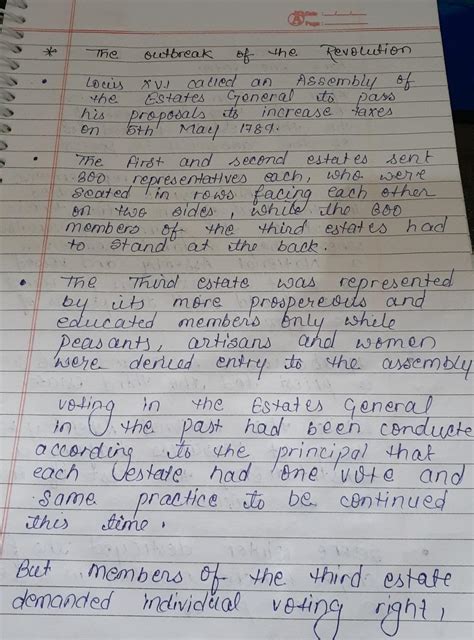 Date :
Page :
* The outbreak of the Revolution
• Louis XVI called an Assembly of
the Estates General to pass
his proposals to increase taxes
on 5th May 1789.
• The first and second estates sent
300 representatives each, who were
seated in rows facing each other
on two sides, while the 600
members of the third estates had
to stand at the back.
• The Third estate was represented
by its more prospereous and
educated members only while
peasants, artisans and women
were denied entry to the assembly
voting in the Estates General
in the past had been conducte
according to the principal that
each estate had one vote and
same practice to be continued
this time.
But members of the third estate
demanded individual voting right,